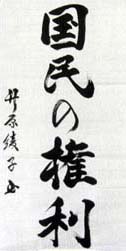 国民の権利
井原綾子書